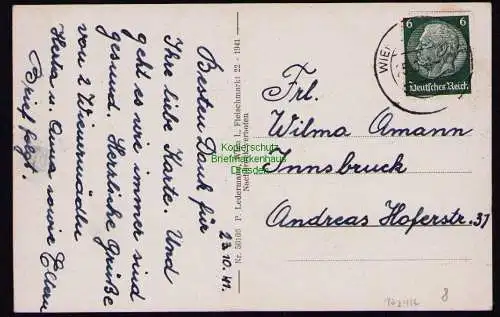 23.10.41.
Besten Dank für
Ihre liebe Karte. Und
geht es wie immer sind
gesund. Herzliche Grüße
von 2 Wienermädln
Herta u. Anna sowie Eltern
Brief folgt.
Nr. 50166 P. Ledermann, I., Fleischmarkt 22 - 1941
Nachdruck verboten
6 6
Deutsches Reich
WIEN
Frl.
Wilma Amann
Innsbruck
Andreas Hoferstr. 37
Kopierschutz
Briefmarkenhaus
Dresden
8